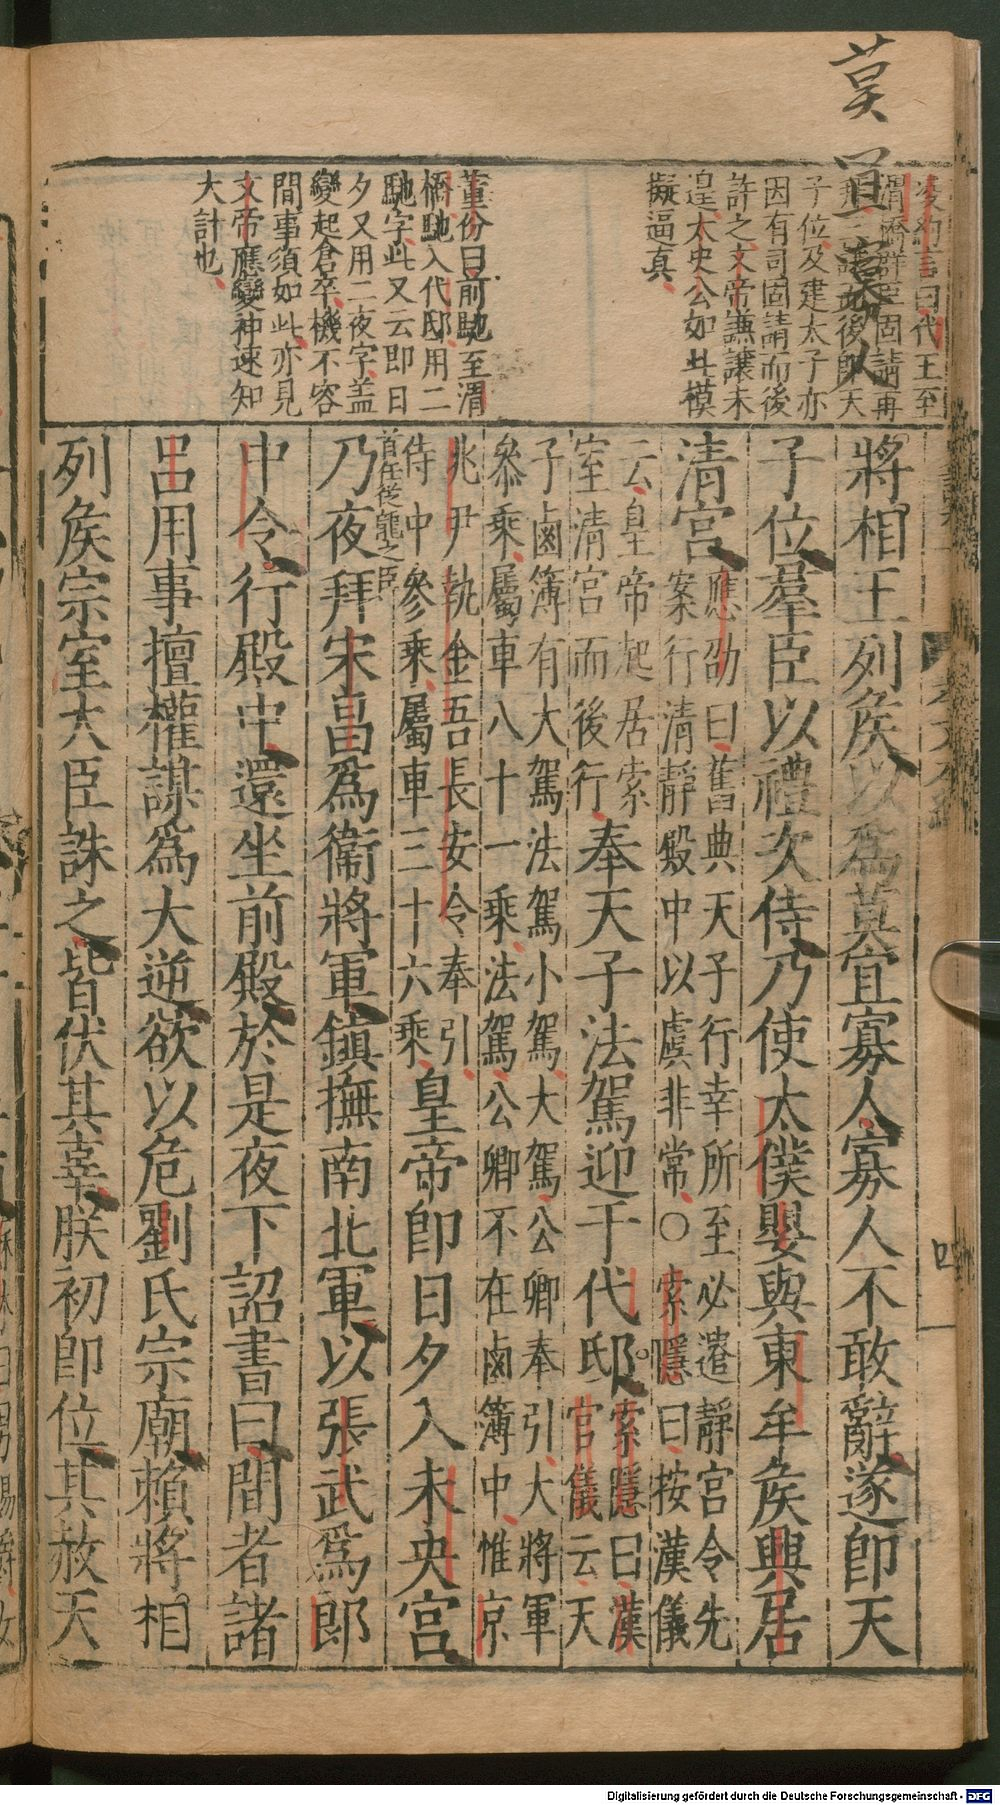 莫
宜
寡
人
凌約言曰代王至
渭橋群臣固請再
後即天
子位及建太子亦
因有司固請而後
許之文帝謙讓未
遑太史公如此模
擬逼真
董份曰前馳至渭
橋馳入代邸用二
馳字此又云即日
夕又用二夜字盖
變起倉卒機不容
間事須如此亦見
文帝應變神速知
大計也
將相王列矦以爲莫宜寡人寡人不敢辭遂卽天
子位羣臣以禮次侍乃使太僕嬰與東牟矦興居
清宮
應劭曰舊典天子行幸所至必遣靜宮令先
案行清靜殿中以虞非常○索隱曰按漢儀
云皇帝起居索
室清宮而後行
奉天子法駕迎于代邸
索隱曰漢
官儀云天
子鹵簿有大駕法駕小駕大駕公卿奉引大將軍
參乘屬車八十一乘法駕公卿不在鹵簿中惟京
兆尹執金吾長安令奉引
侍中參乘屬車三十六乘
皇帝卽日夕入未央宮
首任從龍之臣
乃夜拜宋昌爲衞將軍鎮撫南北軍以張武爲郎
中令行殿中還坐前殿於是夜下詔書曰間者諸
呂用事擅權謀爲大逆欲以危劉氏宗廟賴將相
列矦宗室大臣誅之皆伏其辜朕初卽位其赦天
四
Digitalisierung gefördert durch die Deutsche Forschungsgemeinschaft - DFG